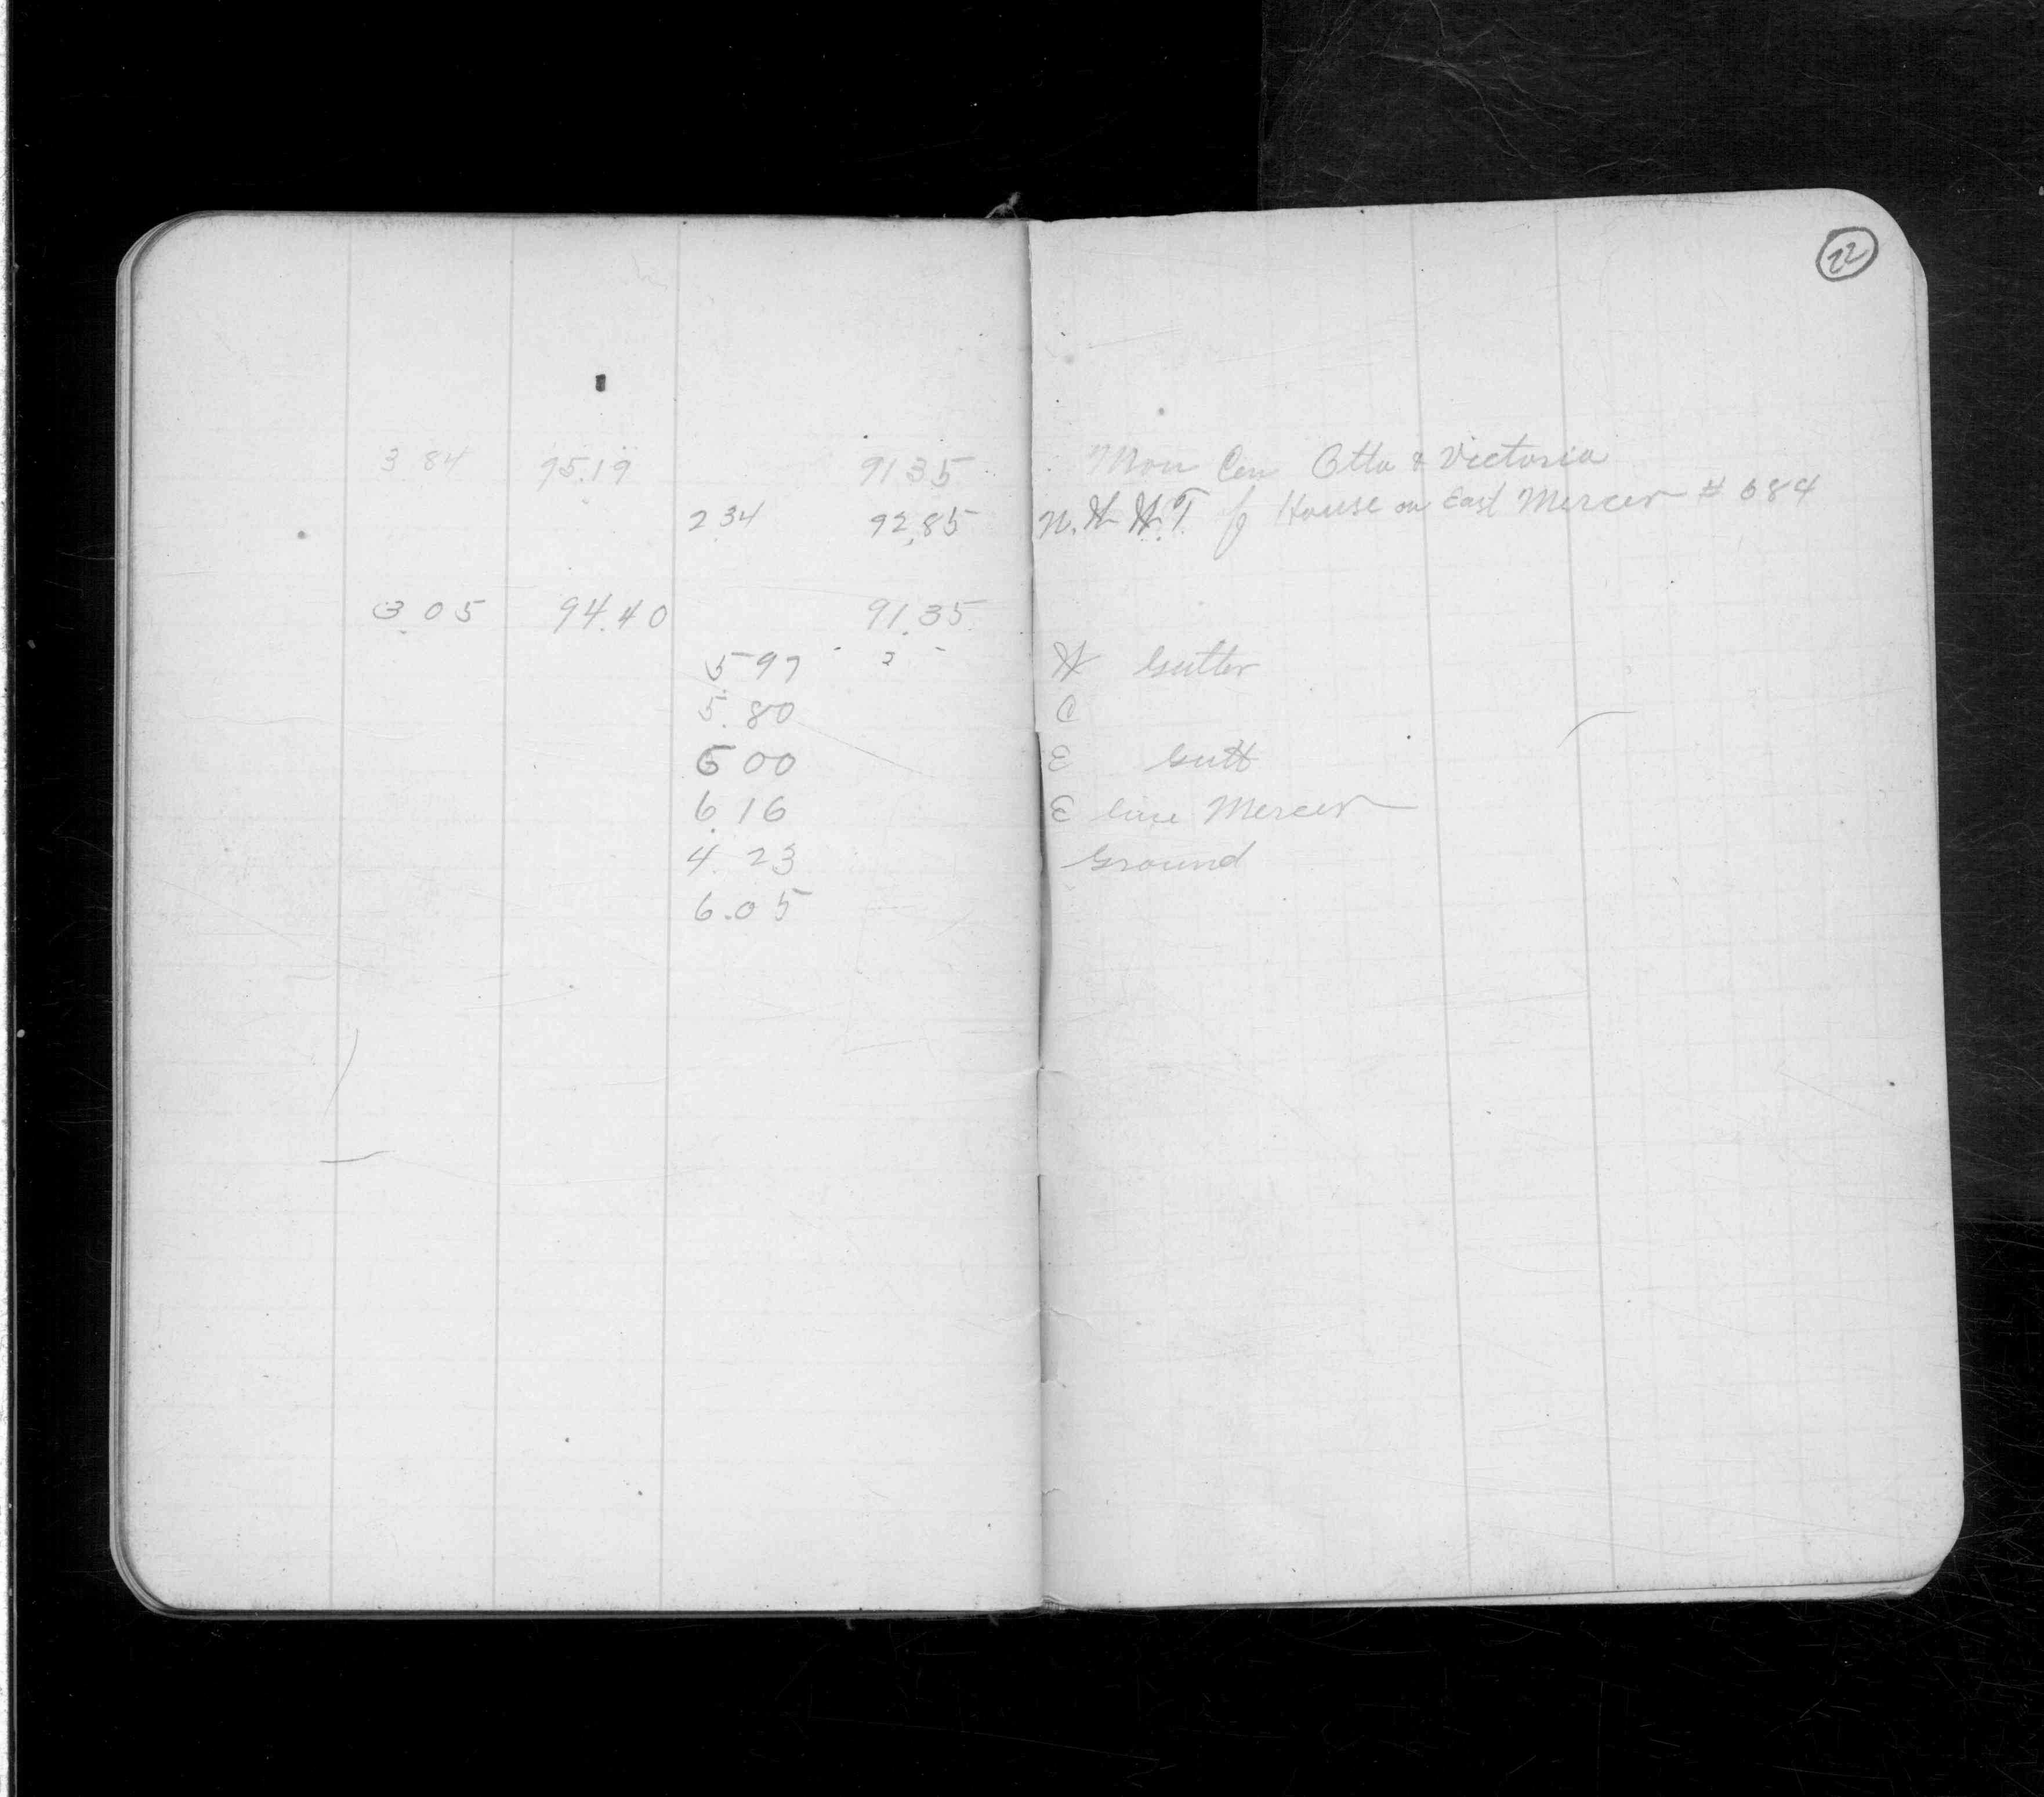 22
3 84 95.19 91 35 Mon Cen Otto & Victoria
2 34 92.85 N. W W.T of House on East Mercer # 684
3 05 94.40 91.35
5 97 W Gutter
5.80 C
6 00 E Gutt
6.16 E line Mercer
4.23 Ground
6.05